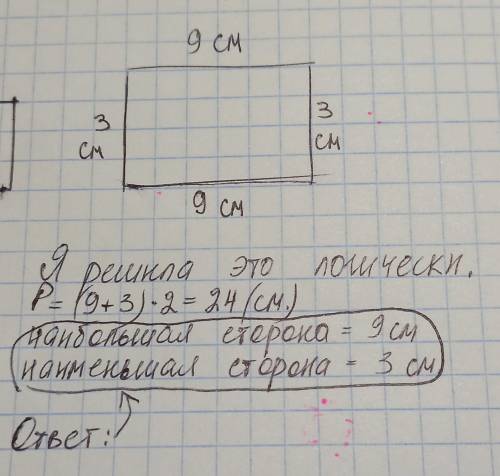 9 см
3 см
3 см
9 см
Я решила это логически.
P = (9+3)·2 = 24 (см.)
наибольшая сторона = 9 см
наименьшая сторона = 3 см
Ответ: